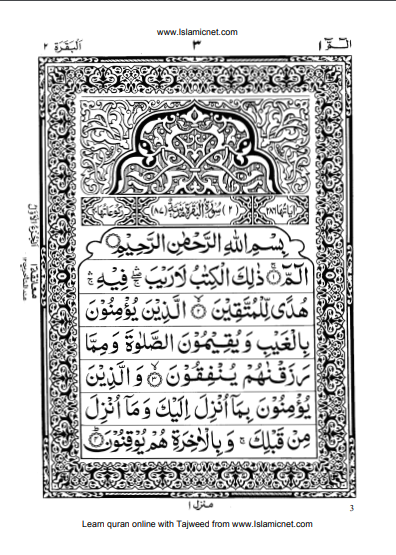 www.Islamicnet.com
الٓمّٓ ١
٣
اَلْبَقَرَة ٢
اٰيَاتُهَا ٢٨٦
(٢) سُوْرَةُ الْبَقَرَةِ مَدَنِيَّةٌ (٨٧)
رُكُوْعَاتُهَا
بِسْمِ اللّٰهِ الرَّحْمٰنِ الرَّحِيْمِ
الٓمّٓ ۚ۝۱ ذٰلِكَ الْكِتٰبُ لَا رَيْبَ ۛۚ فِيْهِ ۛۚ
هُدًى لِّلْمُتَّقِيْنَ ۙ۝۲ الَّذِيْنَ يُؤْمِنُوْنَ
بِالْغَيْبِ وَيُقِيْمُوْنَ الصَّلٰوةَ وَمِمَّا
رَزَقْنٰهُمْ يُنْفِقُوْنَ ۙ۝۳ وَالَّذِيْنَ
يُؤْمِنُوْنَ بِمَاۤ اُنْزِلَ اِلَيْكَ وَمَاۤ اُنْزِلَ
مِنْ قَبْلِكَ ۚ وَبِالْاٰخِرَةِ هُمْ يُوْقِنُوْنَ ۝۴
منزل ١
3
Learn quran online with Tajweed from www.Islamicnet.com